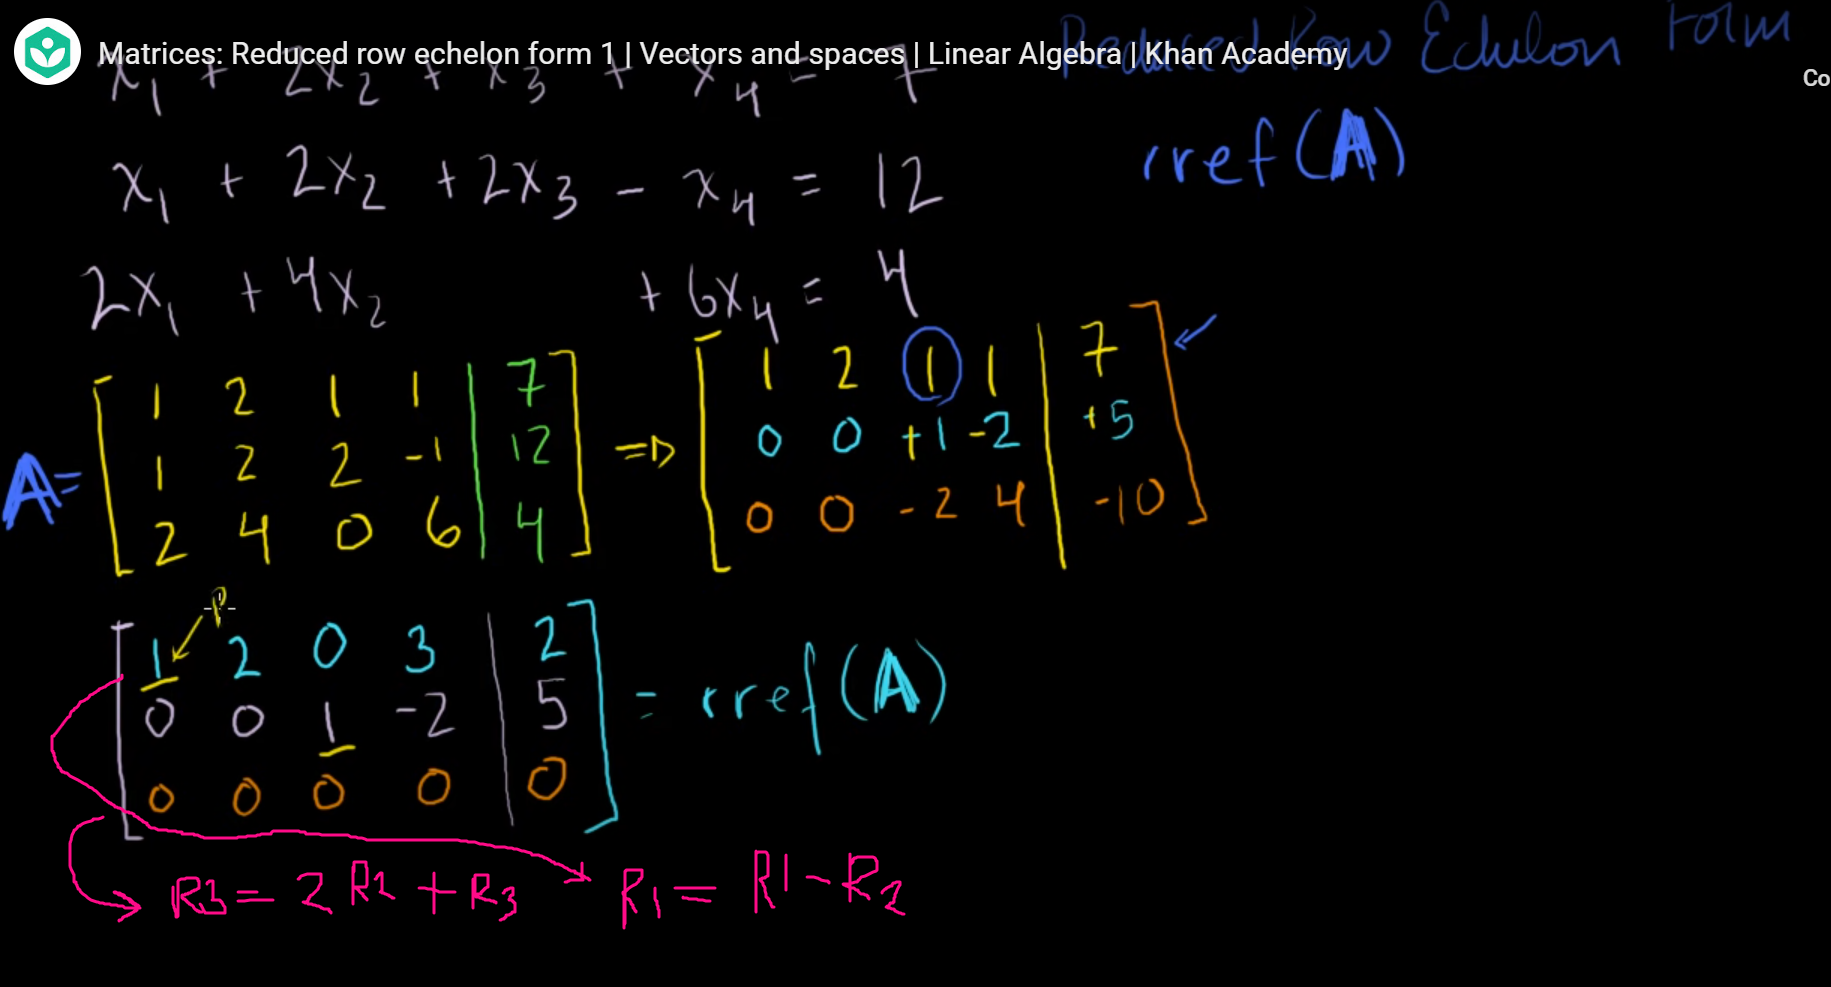 Matrices: Reduced row echelon form 1 | Vectors and spaces | Linear Algebra | Khan Academy
Reduced Row Echelon Form
Co
x₁ + 2x₂ + x₃ + x₄ = 7
rref(A)
x₁ + 2x₂ + 2x₃ - x₄ = 12
2x₁ + 4x₂ + 6x₄ = 4
A = [ 1 2 1 1 | 7 ]
1 2 2 -1 | 12
2 4 0 6 | 4
⇒ [ 1 2 1 1 | 7 ]
0 0 +1 -2 | +5
0 0 -2 4 | -10
P
[ 1 2 0 3 | 2 ]
0 0 1 -2 | 5
0 0 0 0 | 0
= rref(A)
R3 = 2R2 + R3
R1 = R1 - R2